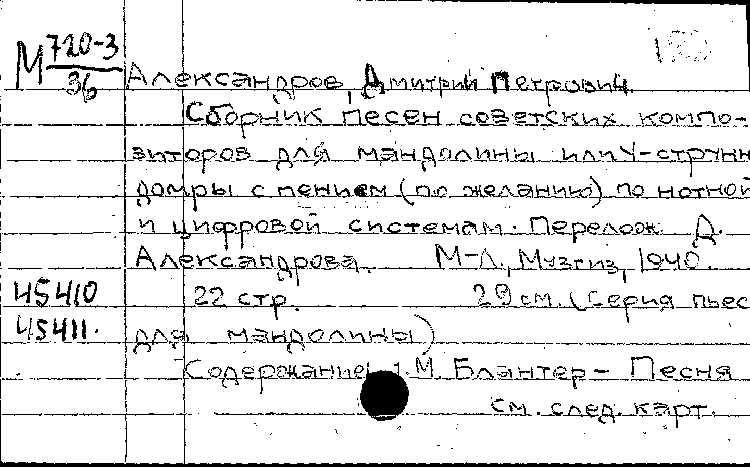 М 720-3
36
Александров, Дмитрий Петрович.
Сборник песен советских компо-
зиторов для мандолины или 4-струнн
домры с пением (по желанию) по нотной
и цифровой системам. Перелож. Д.
Александрова. М-Л., Музгиз, 1940.
45410 22 стр. 29 см. (Серия пьес
45411. для мандолины)
Содержание: 1. М. Блантер - Песня
см. след. карт.